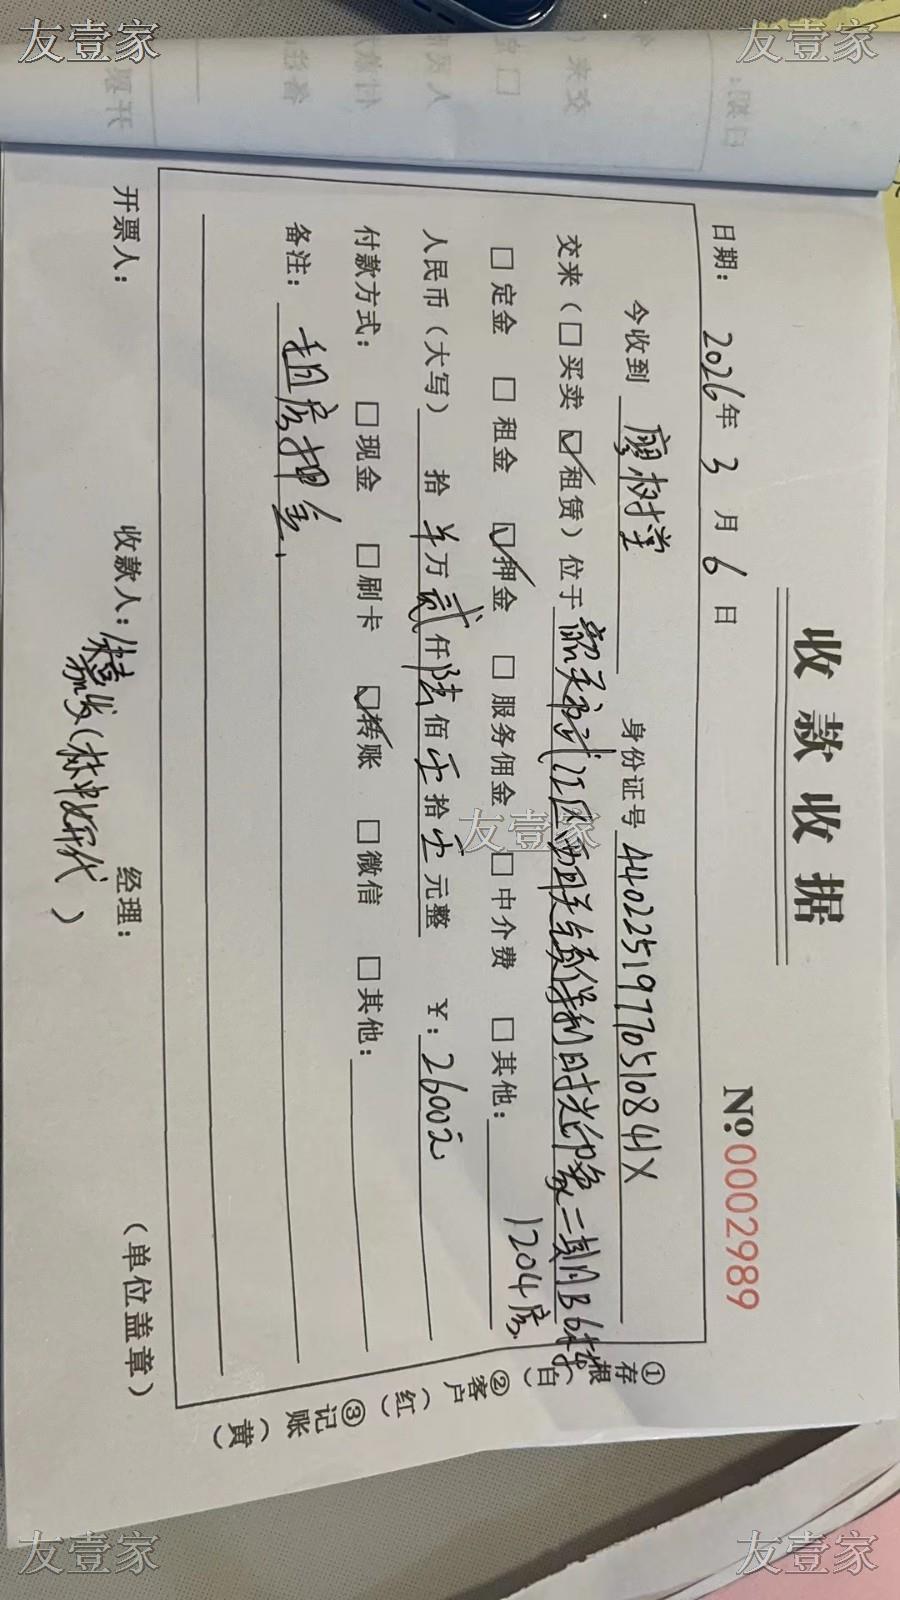 友壹家
友壹家
收款收据
№0002989
日期: 2026年 3 月 6 日
今收到 廖树堂 身份证号 44022519770510841X
交来(□买卖 ☑租赁)位于 韶关市浈江区西联镇保利时光印象二期AB6栋
1204房
□定金 □租金 ☑押金 □服务佣金 □中介费 □其他:
人民币(大写) 拾 羊万 贰仟陆佰零拾零元整 ¥: 2600元
付款方式: □现金 □刷卡 ☑转账 □微信 □其他:
备注: 租房押金
开票人: 收款人: 发(林中辉代) 经理: (单位盖章)
①存根(白) ②客户(红) ③记账(黄)
友壹家
友壹家
友壹家